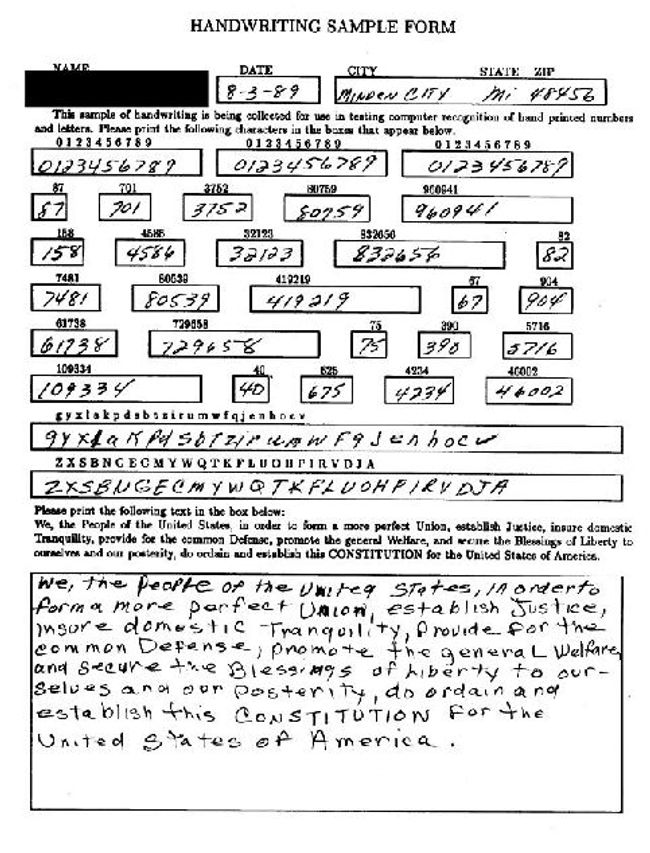 HANDWRITING SAMPLE FORM
NAME DATE CITY STATE ZIP
8-3-89 MINDEN CITY Mi 48456
This sample of handwriting is being collected for use in testing computer recognition of hand printed numbers
and letters. Please print the following characters in the boxes that appear below.
0 1 2 3 4 5 6 7 8 9 0 1 2 3 4 5 6 7 8 9 0 1 2 3 4 5 6 7 8 9
0123456789 0123456789 0123456789
87 701 3752 80759 960941
87 701 3752 80759 960941
158 4586 32123 832656 82
158 4586 32123 832656 82
7481 80539 419219 67 904
7481 80539 419219 67 904
61738 729658 75 390 5716
61738 729658 75 390 5716
109334 40 625 4234 46002
109334 40 675 4234 46002
gyxlakpdsbtzirumwfqjenhocv
gyxlaKpdsbtzirumwFqJenhocv
ZXSBNGECMYWQTKFLUOHPIRVDJA
ZXSBNGECMYWQTKFLUOHPIRVDJA
Please print the following text in the box below:
We, the People of the United States, in order to form a more perfect Union, establish Justice, insure domestic
Tranquility, provide for the common Defense, promote the general Welfare, and secure the Blessings of Liberty to
ourselves and our posterity, do ordain and establish this CONSTITUTION for the United States of America.
We, the People of the United States, in order to
form a more perfect Union, establish Justice,
insure domestic Tranquility, Provide for the
common Defense, promote the general Welfare,
and secure the Blessings of Liberty to our-
selves and our Posterity, do ordain and
establish this CONSTITUTION For the
United States of America.